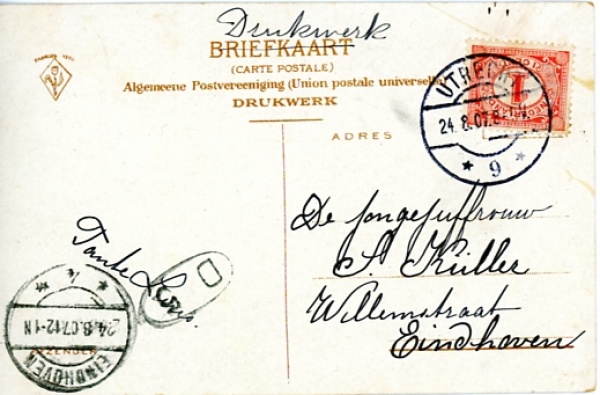 Drukwerk
BRIEFKAART
(CARTE POSTALE)
Algemeene Postvereeniging (Union postale universelle)
DRUKWERK
UTRECHT
24.8.07.8
* 9 *
1
ADRES
De Jongejuffrouw
A. Küller
Willemstraat
Eindhoven
Tante Cor.
D
4
24.8.07.12-1N
EINDHOVEN
AFZENDER